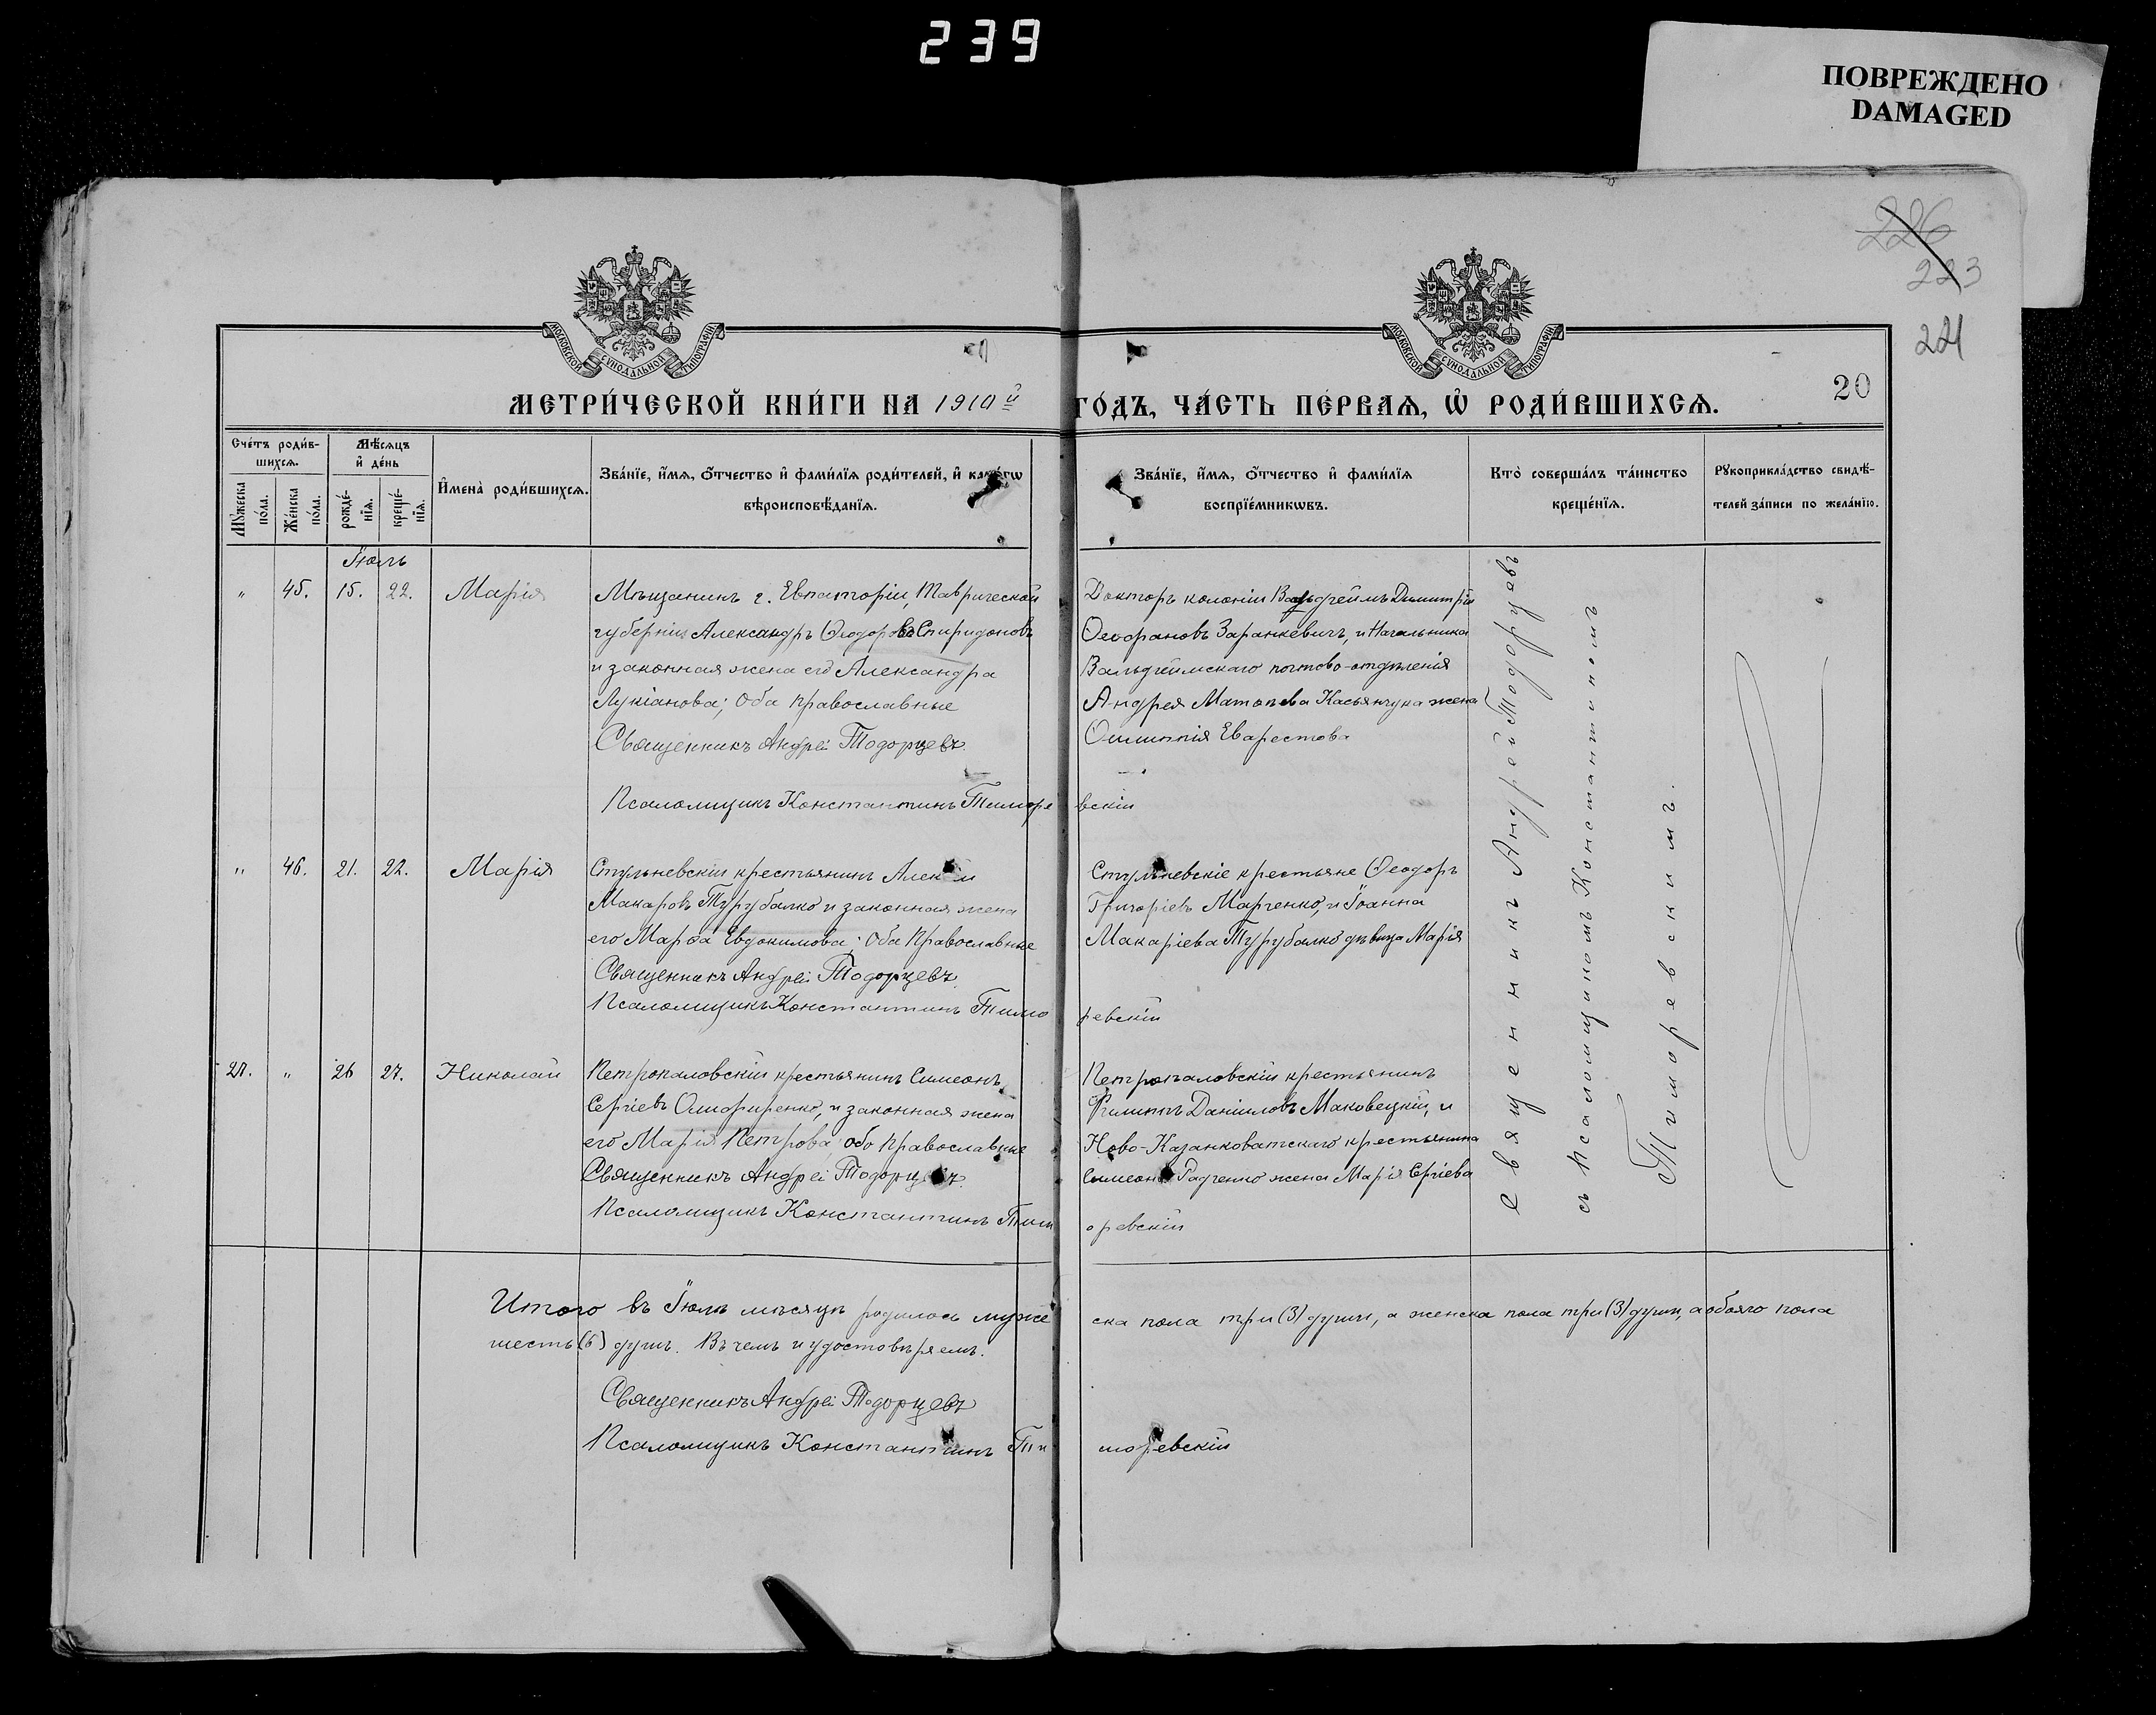 239
ПОВРЕЖДЕНО
DAMAGED
226
223
221
20
МОСКОВСКОЙ СѴНОДАЛЬНОЙ ТИПОГРАФІИ
МОСКОВСКОЙ СѴНОДАЛЬНОЙ ТИПОГРАФІИ
МЕТРИ́ЧЕСКОЙ КНИ́ГИ НА 1910й ГО́ДЪ, ЧА́СТЬ ПЕ́РВАѦ, Ѽ РОДИ́ВШИХСѦ.
Сче́тъ роди́вшихсѧ.
Мѣ́сѧцъ и҆ де́нь
Мꙋ́жеска по́ла.
Же́нска по́ла.
рожде́нїѧ.
креще́нїѧ.
И҆мена̀ роди́вшихсѧ.
Зва́нїе, и҆́мѧ, ѻ҆́тчество и҆ фами́лїѧ роди́телей, и҆ како́гѡ вѣроисповѣ́данїѧ.
Зва́нїе, и҆́мѧ, ѻ҆́тчество и҆ фами́лїѧ воспрїе́мникѡвъ.
Кто̀ соверша́лъ та́инство креще́нїѧ.
Рꙋкоприкла́дство свидѣ́телей за́писи по жела́нїю.
Іюль
" 45. 15. 22. Марія
Мѣщанинъ г. Евпаторіи, Таврической
губерніи Александръ Ѳеодоровъ Спиридоновъ
и законная жена его Александра
Лукіанова; Оба православные
Священникъ Андрей Тодорцевъ
Псаломщикъ Константинъ Тиморевскій
Докторъ колоніи Вальдгеймъ Димитрій
Ѳеофановъ Заранкевичъ, и Начальника
Вальдгеймскаго почтово-отдѣленія
Андрея Матѳѣева Касьянчука жена
Олимпія Еварестова
" 46. 21. 22. Марія
Стульневскій крестьянинъ
Макаровъ Турубалко и законная жена
его Марѳа Евдокимова; Оба Православные
Священникъ Андрей Тодорцевъ
Псаломщикъ Константинъ Тиморевскій
Стульневскіе крестьяне Ѳеодоръ
Григоріевъ Марченко, и Іоанна
Макаріева Турубалко дѣвица Марія
27. " 26 27. Николай
Петропаловскій крестьянинъ Симеонъ
Сергіевъ Онофиренко, и законная жена
его Марія Петрова обо православные
Священникъ Андрей Тодорцевъ
Псаломщикъ Константинъ Тиморевскій
Петропаловскій крестьянинъ
Филиппъ Даніиловъ Маковецкій, и
Ново-Казанковатскаго крестьянина
Симеона Радченко жена Марія Сергіева
Священникъ Андрей Тодорцевъ
съ Псаломщикомъ Константиномъ
Тиморевскимъ.
Итого въ Іюлѣ мѣсяцѣ родилось мужеска пола три (3) души, а женска пола три (3) души, а обоего пола
шесть (6) душъ. Въ чемъ и удостовѣряемъ.
Священникъ Андрей Тодорцевъ
Псаломщикъ Константинъ Тиморевскій